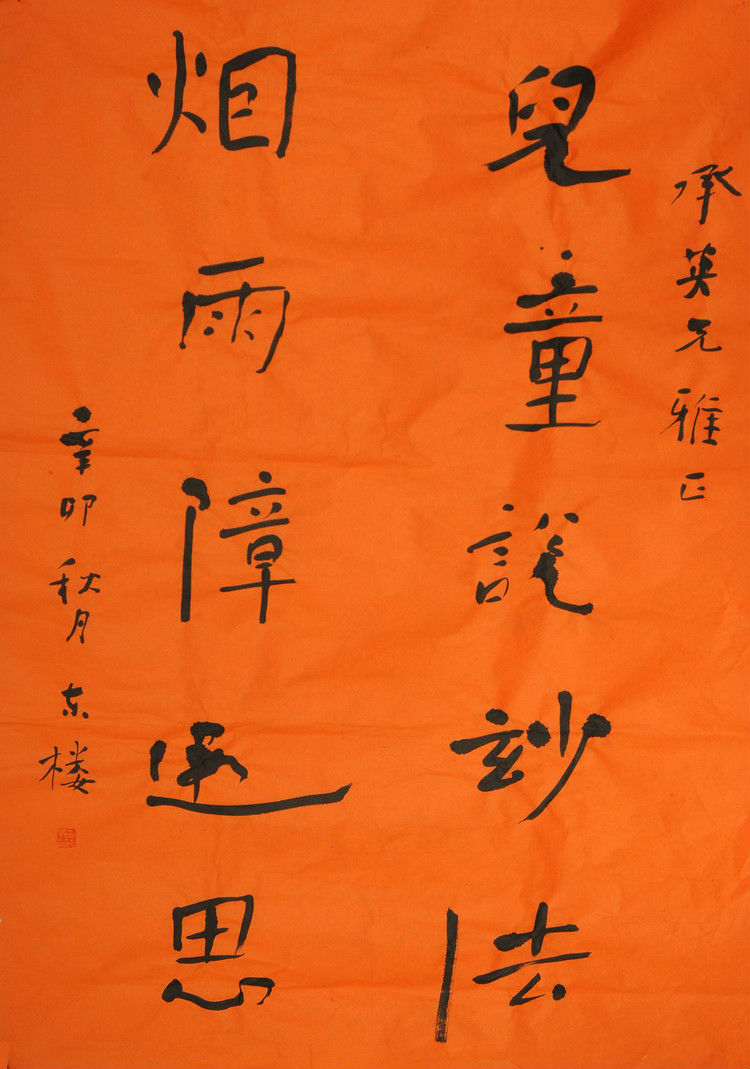 承英兄雅正
兒童說玅法
烟雨障遐思
辛卯秋月东楼